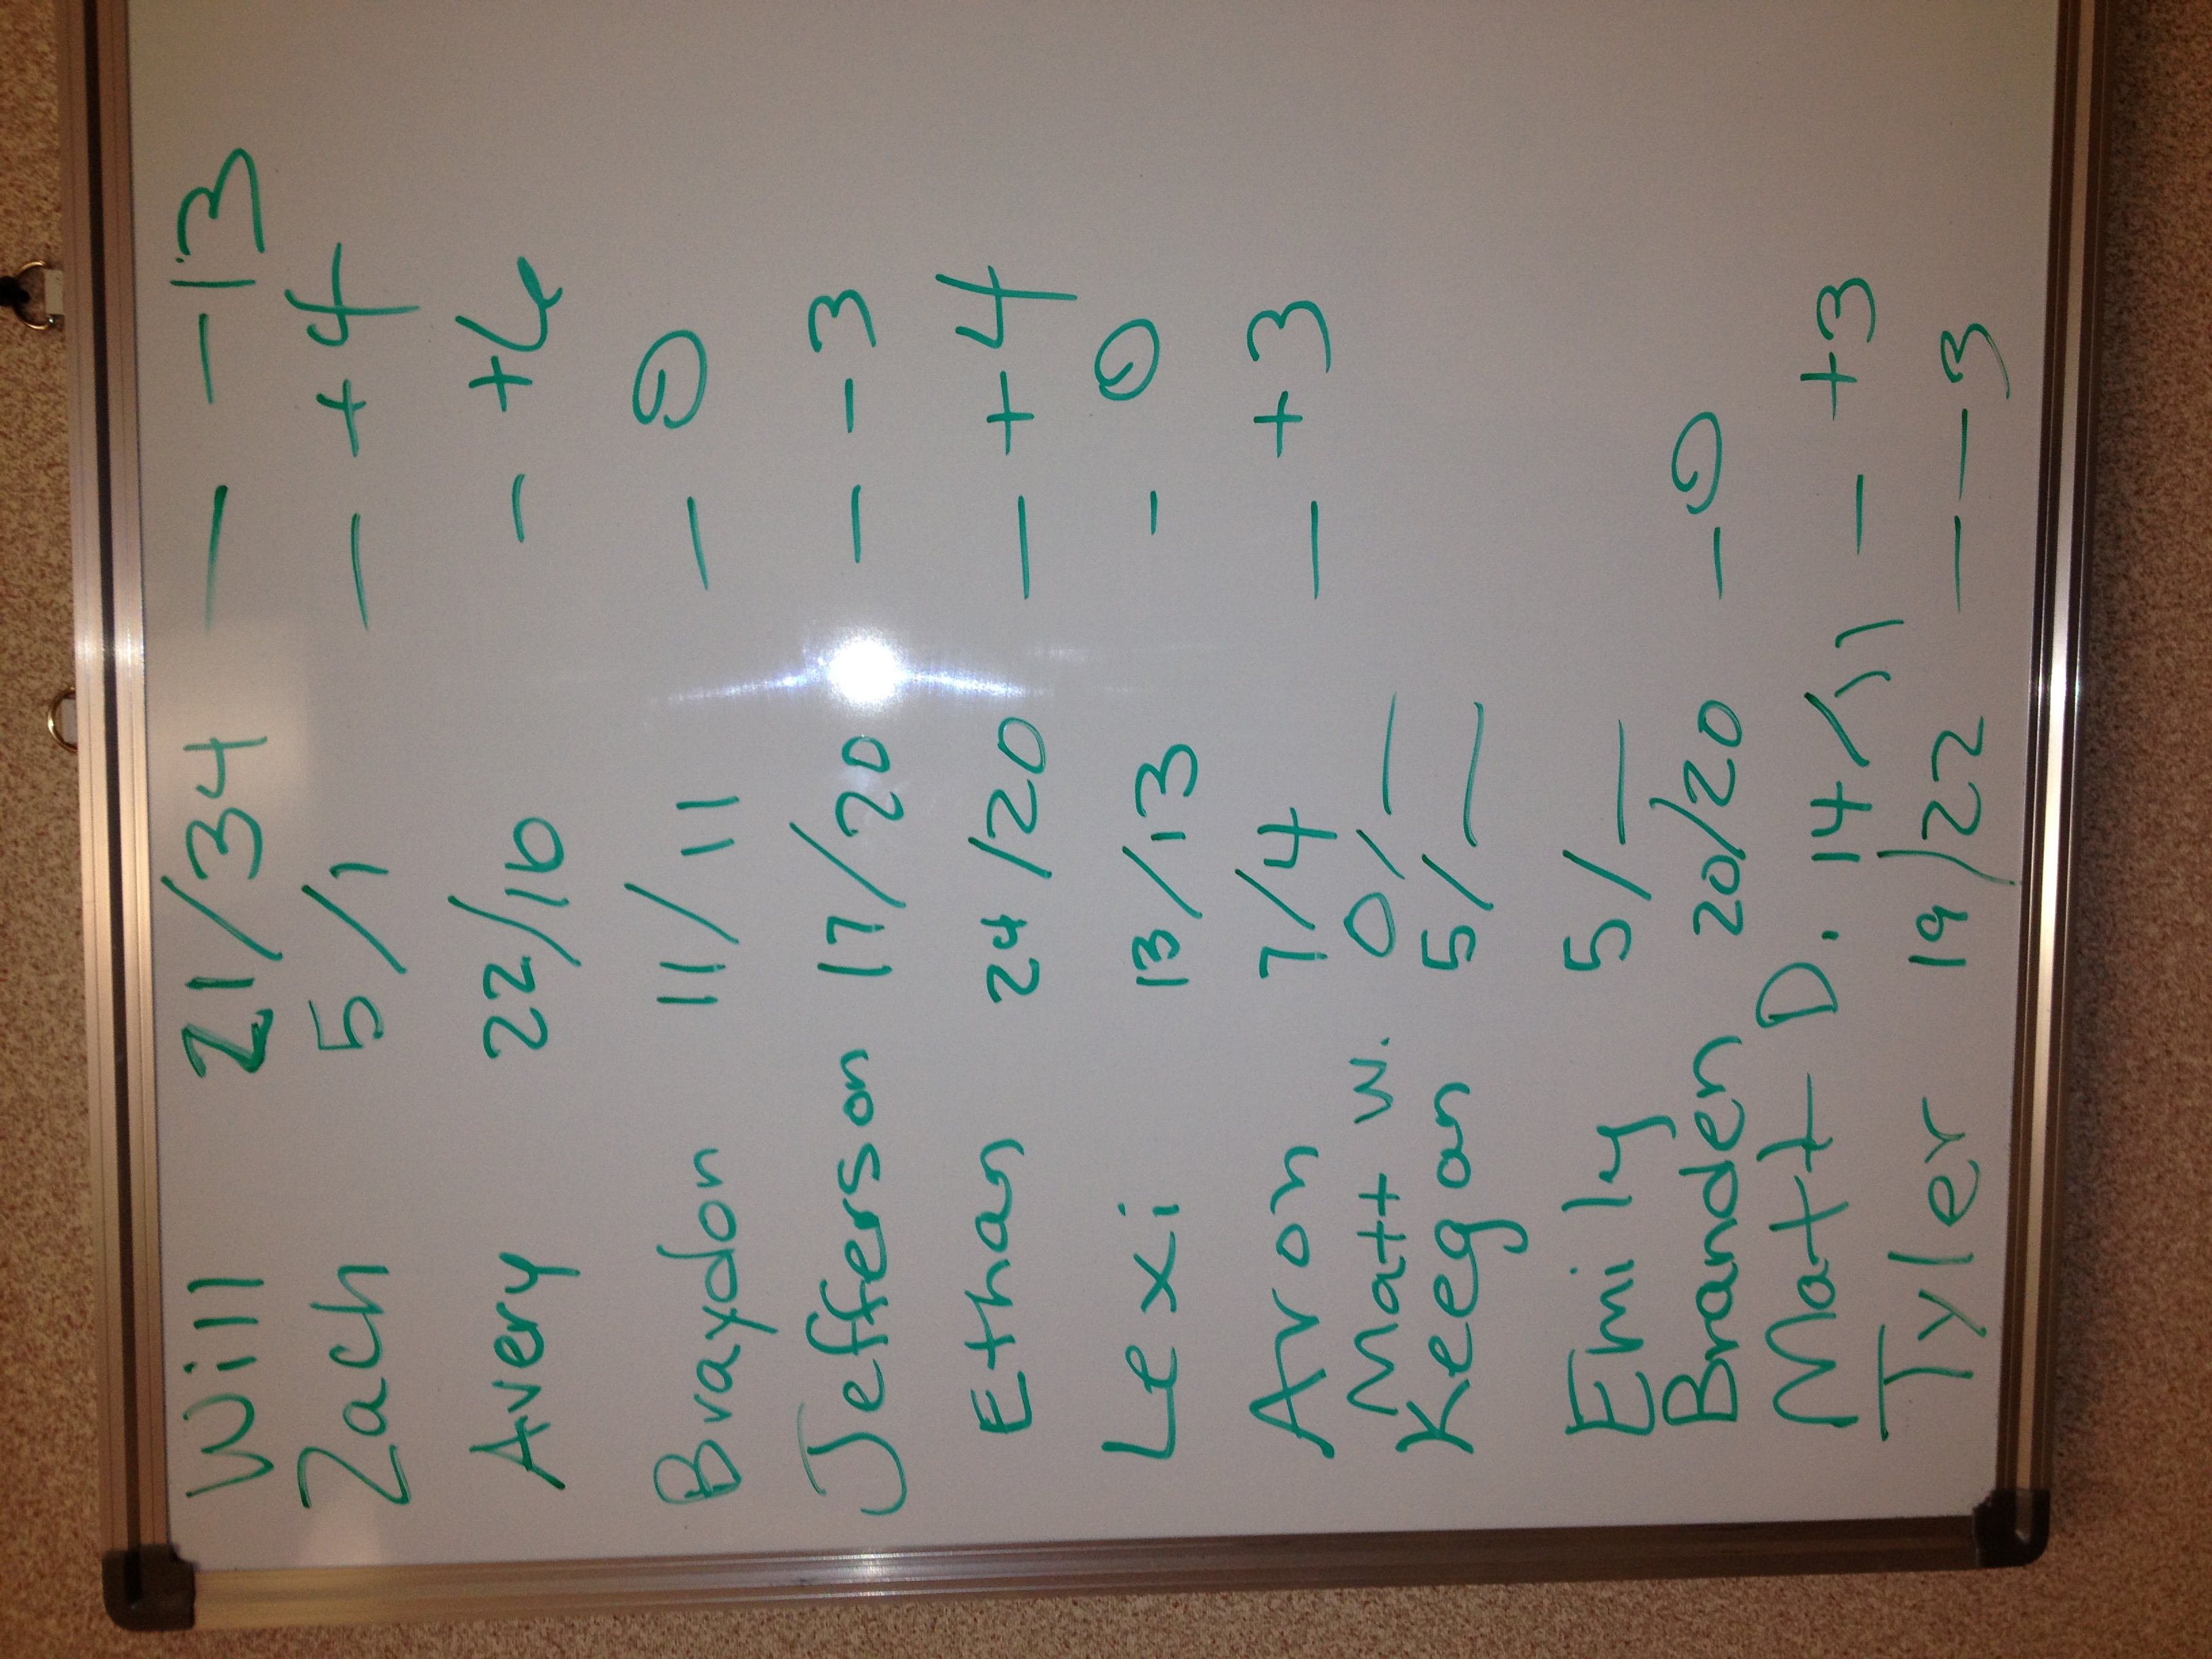 Will 21/34 — -13
Zach 5/1 — +4
Avery 22/16 - +6
Braydon 11/11 — 0
Jefferson 17/20 — -3
Ethan 24/20 — +4
Lexi 13/13 - 0
Aron 7/4 — +3
Matt W. 0/—
Keegan 5/—
Emily 5/—
Branden 20/20 — 0
Matt D. 14/11 — +3
Tyler 19/22 — -3